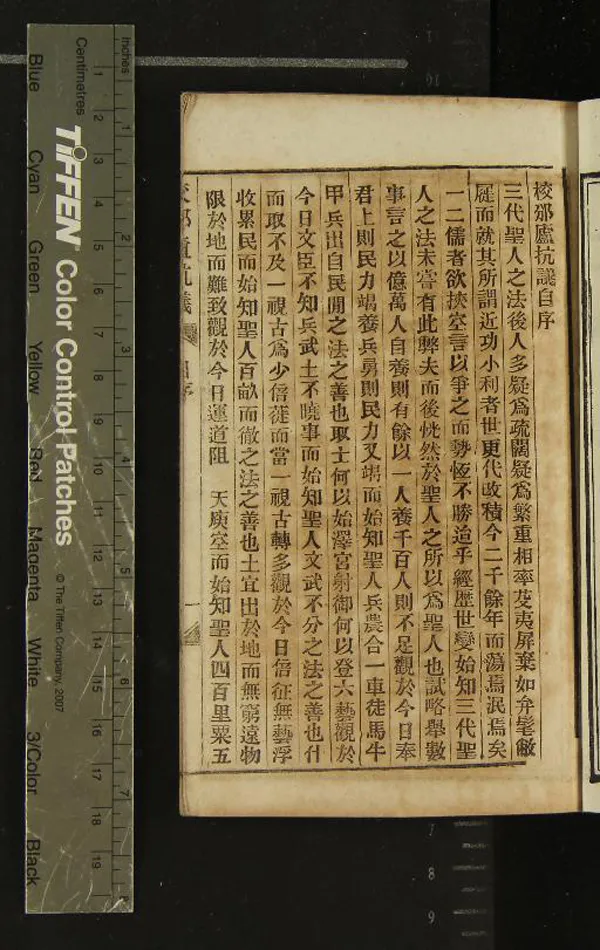 校邠廬抗議自序
三代聖人之法後人多疑爲疏闊疑爲繁重相率芟夷屏棄如弁髦敝
屣而就其所謂近功小利者世更代改積今二千餘年而蕩焉泯焉矣
一二儒者欲挾空言以爭之而勢恆不勝迨乎經歷世變始知三代聖
人之法未嘗有此弊夫而後恍然於聖人之所以爲聖人也試略舉數
事言之以億萬人自養則有餘以一人養千百人則不足觀於今日奉
君上則民力竭養兵勇則民力又竭而始知聖人兵農合一車徒馬牛
甲兵出自民閒之法之善也取士何以始澤宮射御何以登六藝觀於
今日文臣不知兵武士不曉事而始知聖人文武不分之法之善也什
而取不及一視古爲少倍蓰而當一視古轉多觀於今日倍征無藝浮
收累民而始知聖人百畝而徹之法之善也土宜出於地而無窮遠物
限於地而難致觀於今日運道阻 天庾空而始知聖人四百里粟五
校邠廬抗議 自序 一
Inches
Centimetres
1 2 3 4 5 6 7 8
1 2 3 4 5 6 7 8 9 10 11 12 13 14 15 16 17 18 19
TIFFEN Color Control Patches
© The Tiffen Company, 2007
Blue Cyan Green Yellow Red Magenta White 3/Color Black
1
10
1
8
9